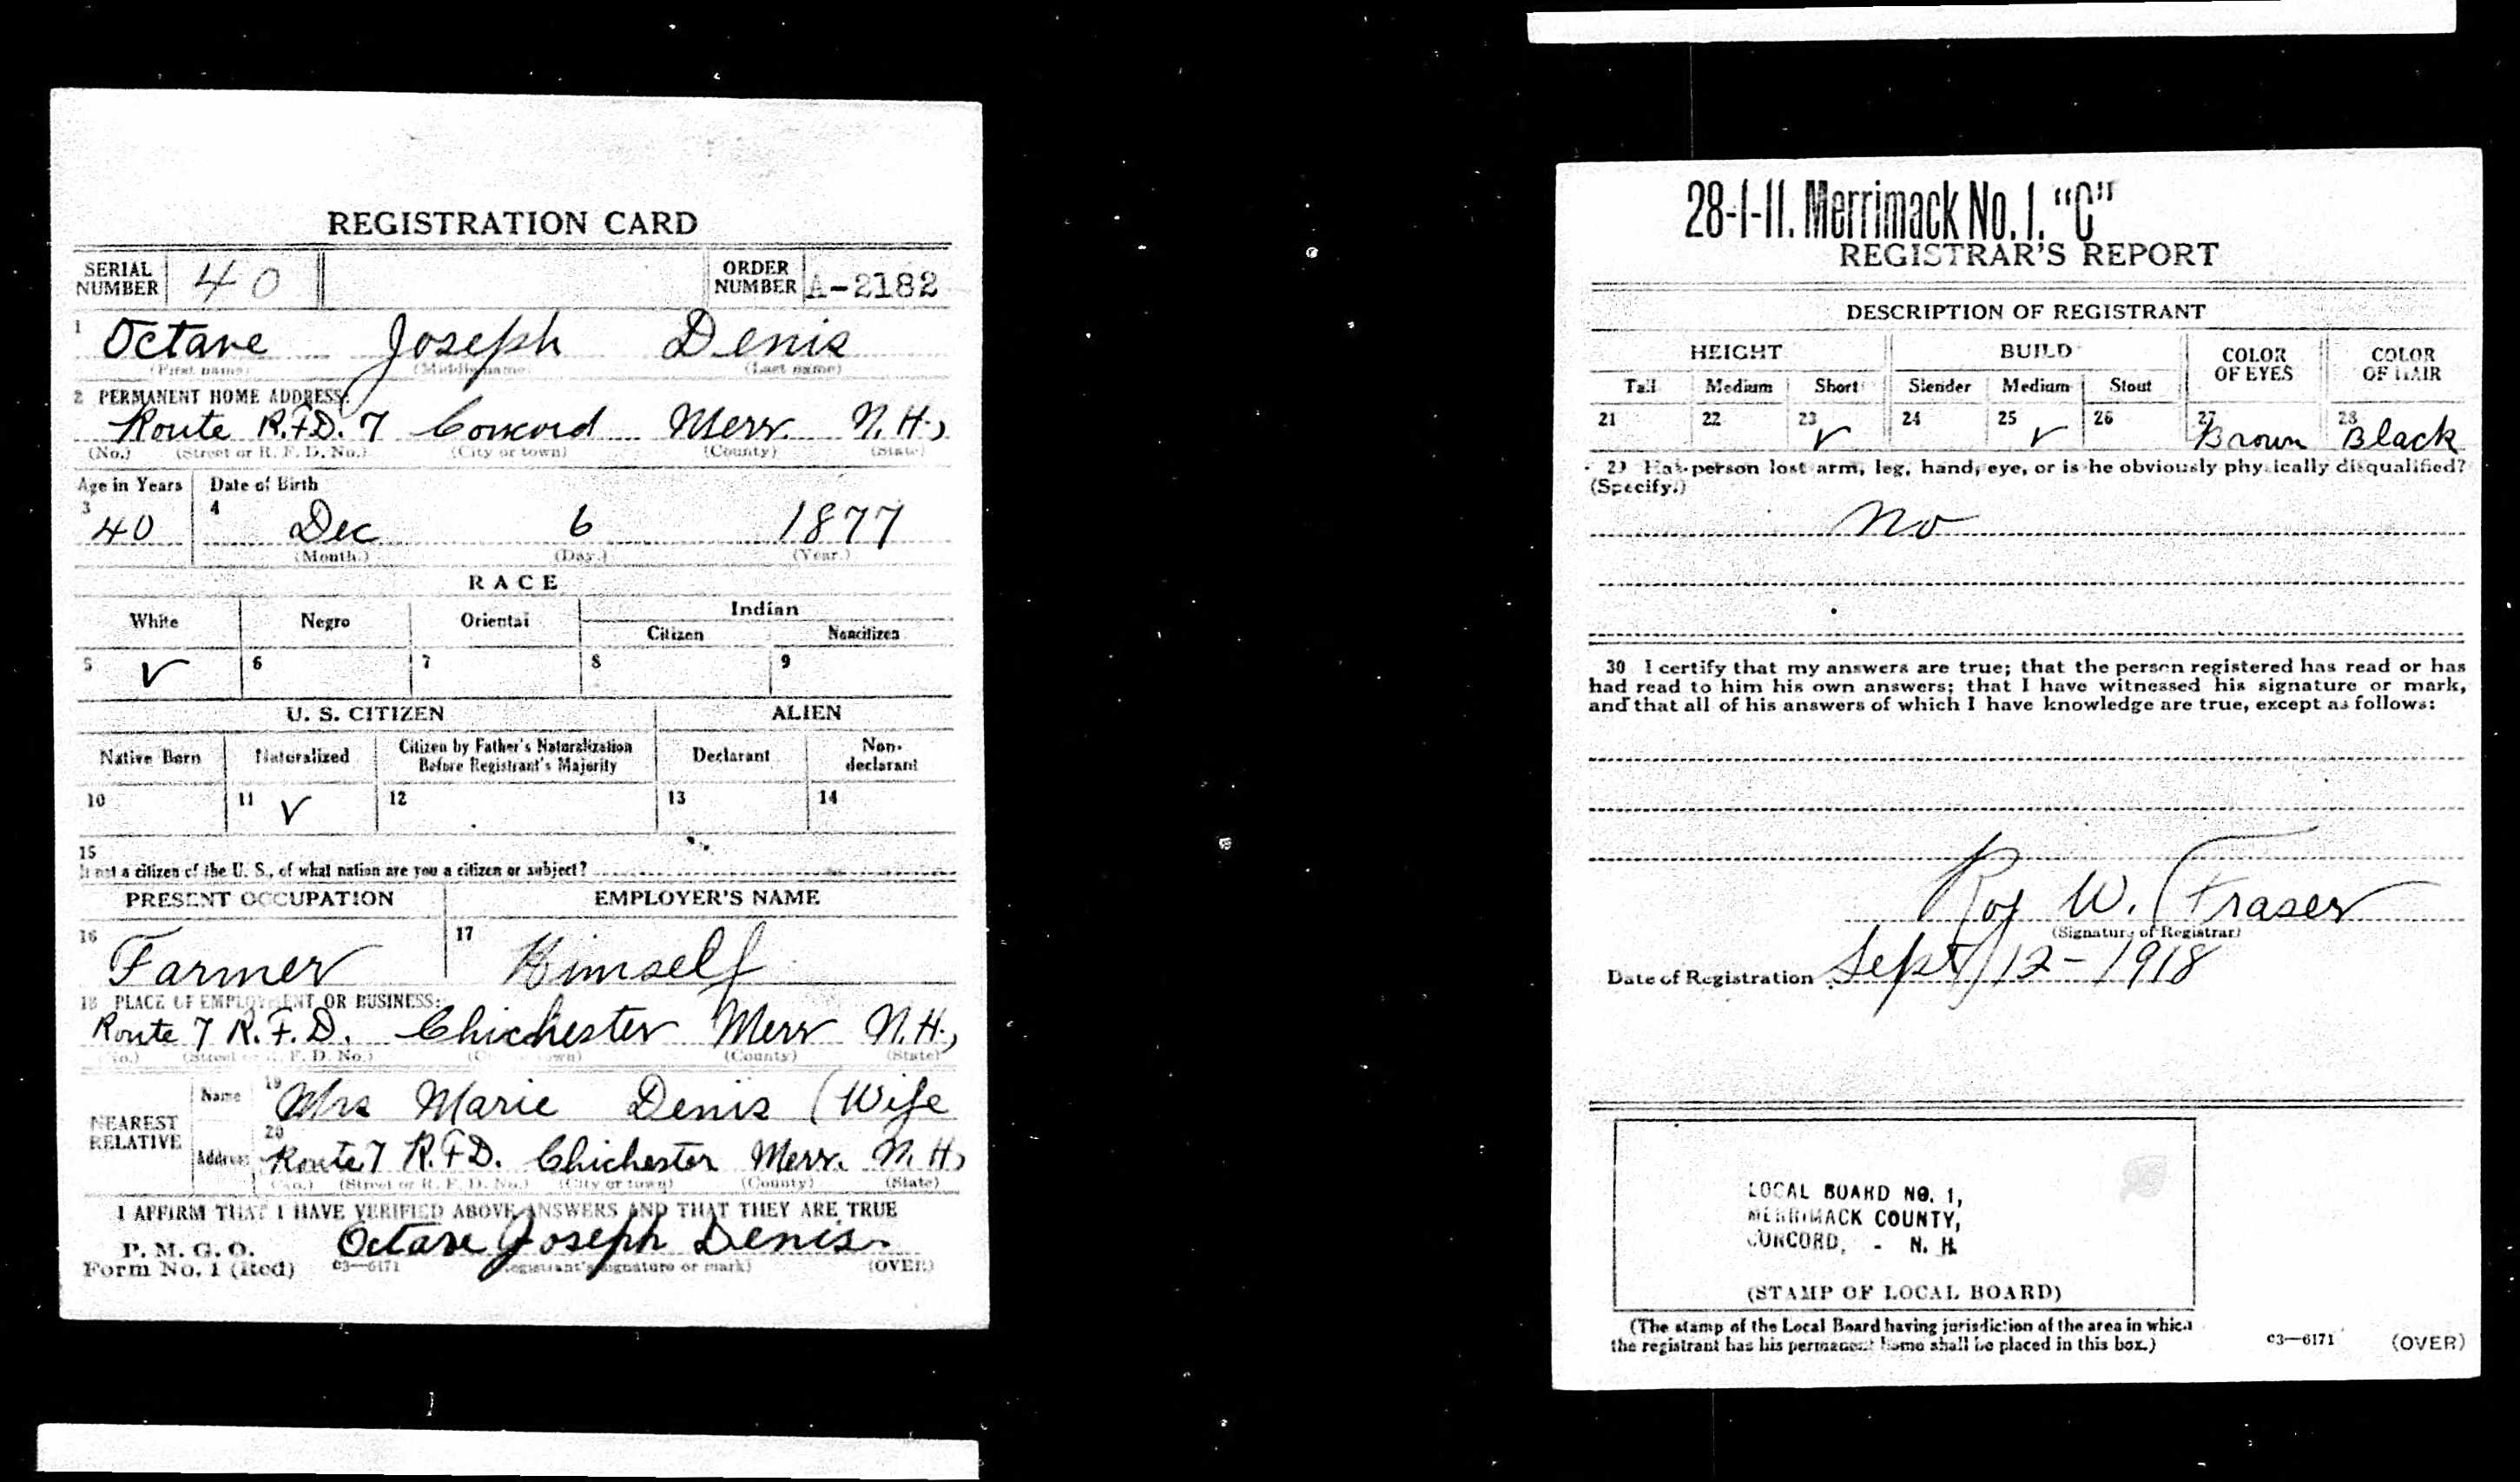 REGISTRATION CARD
SERIAL NUMBER 40 ORDER NUMBER A-2182
1 Octave Joseph Denis
(First name) (Middle name) (Last name)
2 PERMANENT HOME ADDRESS:
Route R.F.D. 7 Concord Merr. N.H.,
(No.) (Street or R. F. D. No.) (City or town) (County) (State)
Age in Years Date of Birth
3 40 4 Dec 6 1877
(Month.) (Day.) (Year.)
RACE
White Negro Oriental Indian
Citizen Noncitizen
5 ✓ 6 7 8 9
U. S. CITIZEN ALIEN
Native Born Naturalized Citizen by Father's Naturalization Before Registrant's Majority Declarant Non-declarant
10 11 ✓ 12 13 14
15
If not a citizen of the U. S., of what nation are you a citizen or subject?
PRESENT OCCUPATION EMPLOYER'S NAME
16 Farmer 17 Himself
18 PLACE OF EMPLOYMENT OR BUSINESS:
Route 7 R.F.D. Chichester Merr N.H.,
(No.) (Street or R. F. D. No.) (City or town) (County) (State)
NEAREST RELATIVE
Name 19 Mrs Marie Denis (Wife
Address 20 Route 7 R.F.D. Chichester Merr. N.H,
(No.) (Street or R. F. D. No.) (City or town) (County) (State)
I AFFIRM THAT I HAVE VERIFIED ABOVE ANSWERS AND THAT THEY ARE TRUE
P. M. G. O.
Form No. 1 (Red) Octave Joseph Denis
03—6171 (Registrant's signature or mark) (OVER)
28-1-11. Merrimack No. 1. "C"
REGISTRAR'S REPORT
DESCRIPTION OF REGISTRANT
HEIGHT BUILD COLOR OF EYES COLOR OF HAIR
Tall Medium Short Slender Medium Stout
21 22 23 ✓ 24 25 ✓ 26 27 Brown 28 Black
29 Has person lost arm, leg, hand, eye, or is he obviously physically disqualified?
(Specify.)
No
30 I certify that my answers are true; that the person registered has read or has
had read to him his own answers; that I have witnessed his signature or mark,
and that all of his answers of which I have knowledge are true, except as follows:
Roy W. Fraser
(Signature of Registrar)
Date of Registration Sept 12-1918
LOCAL BOARD NO. 1,
MERRIMACK COUNTY,
CONCORD, - N. H.
(STAMP OF LOCAL BOARD)
(The stamp of the Local Board having jurisdiction of the area in which
the registrant has his permanent home shall be placed in this box.)
03—6171 (OVER)